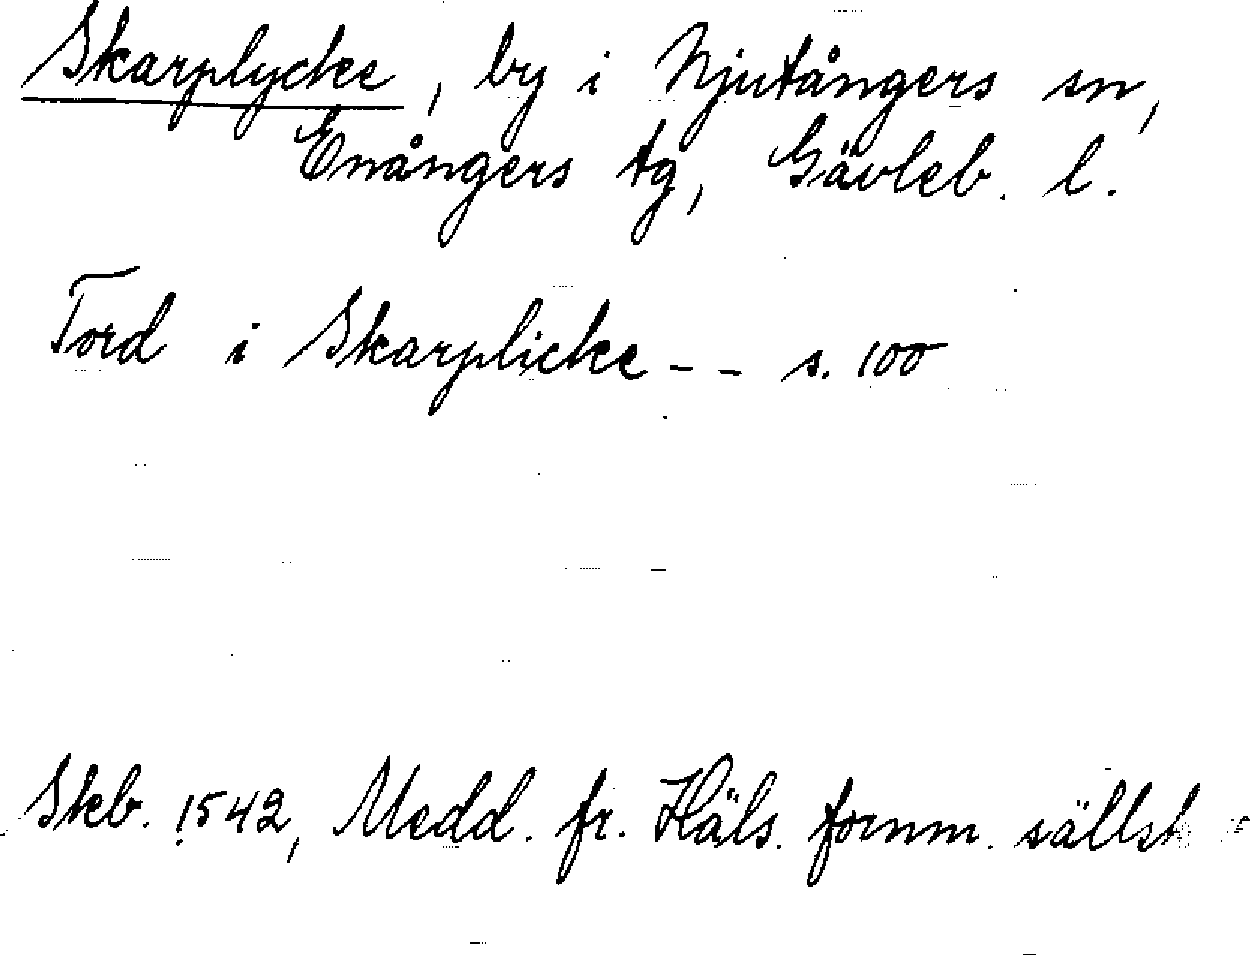 Skarplycke, by i Njutångers sn,
Enångers tg, Gävleb. l.
Tord i Skarplicke - - s. 100
Skb. 1542, Medd. fr. Häls. fornm. sällsk